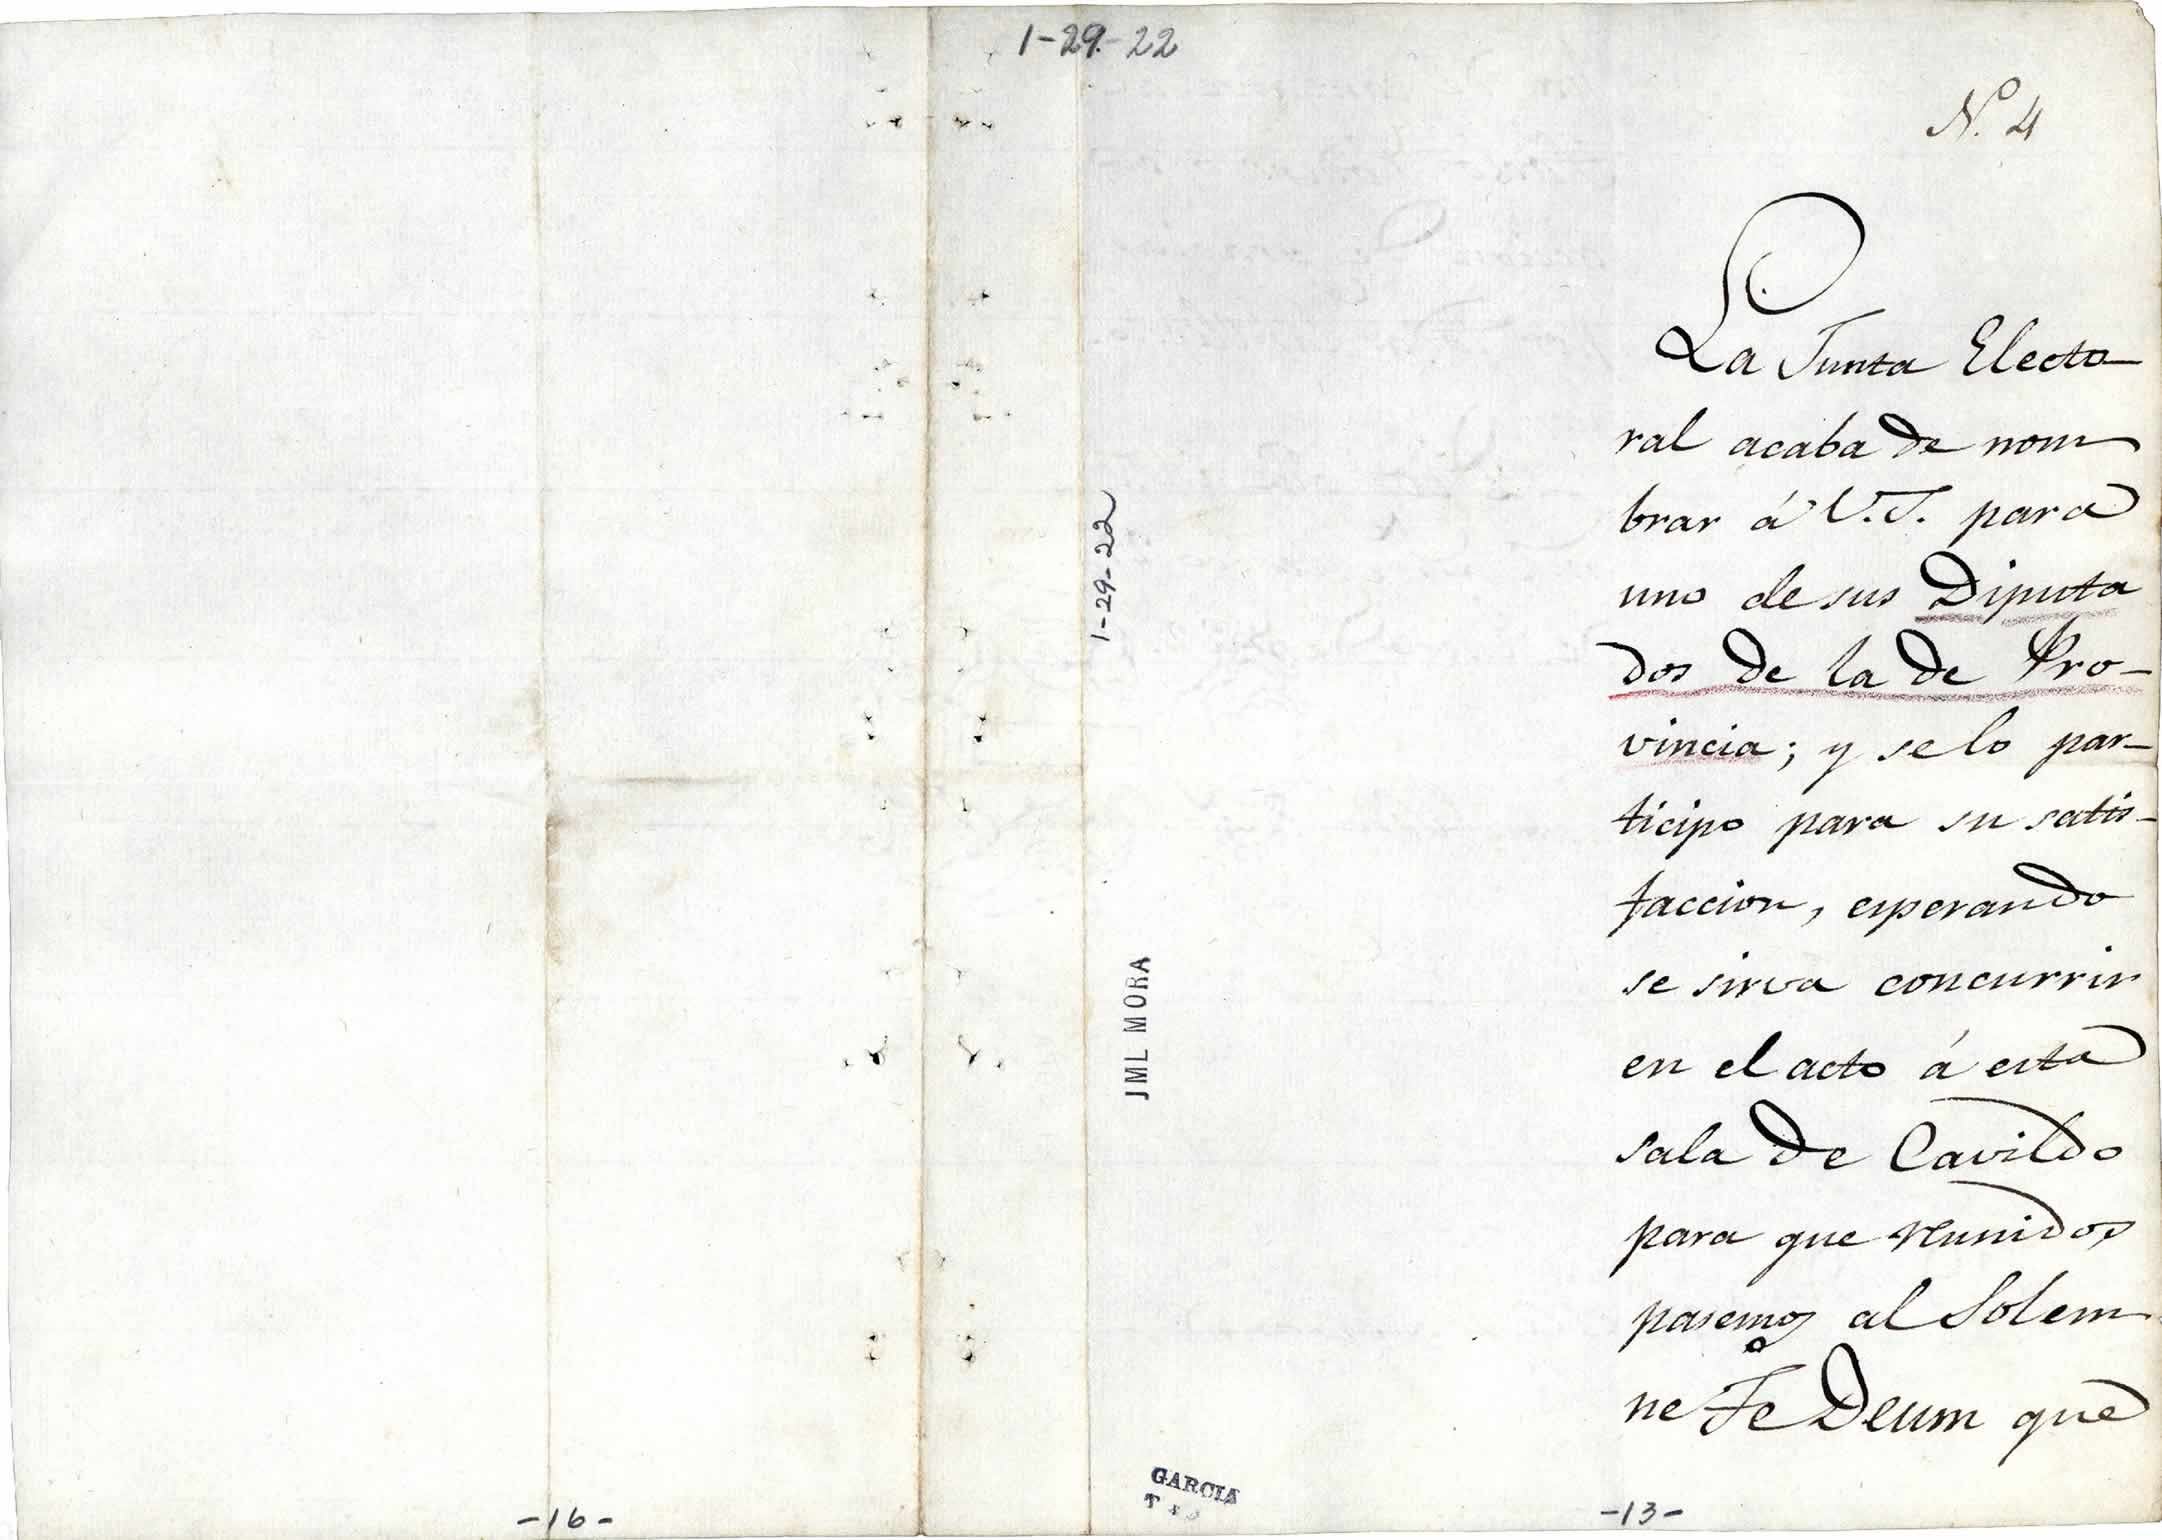 1-29-22
Nº. 4
La Junta Electo-
ral acaba de nom
brar á V.S. para
uno de sus Diputa
dos de la de Pro-
vincia; y se lo par-
ticipo para su satis-
faccion, esperando
se sirva concurrir
en el acto á esta
sala de Cavildo
para que reunidos
pasemos al Solem-
ne Te Deum que
1-29-22
JML MORA
GARCIA
-16-
-13-